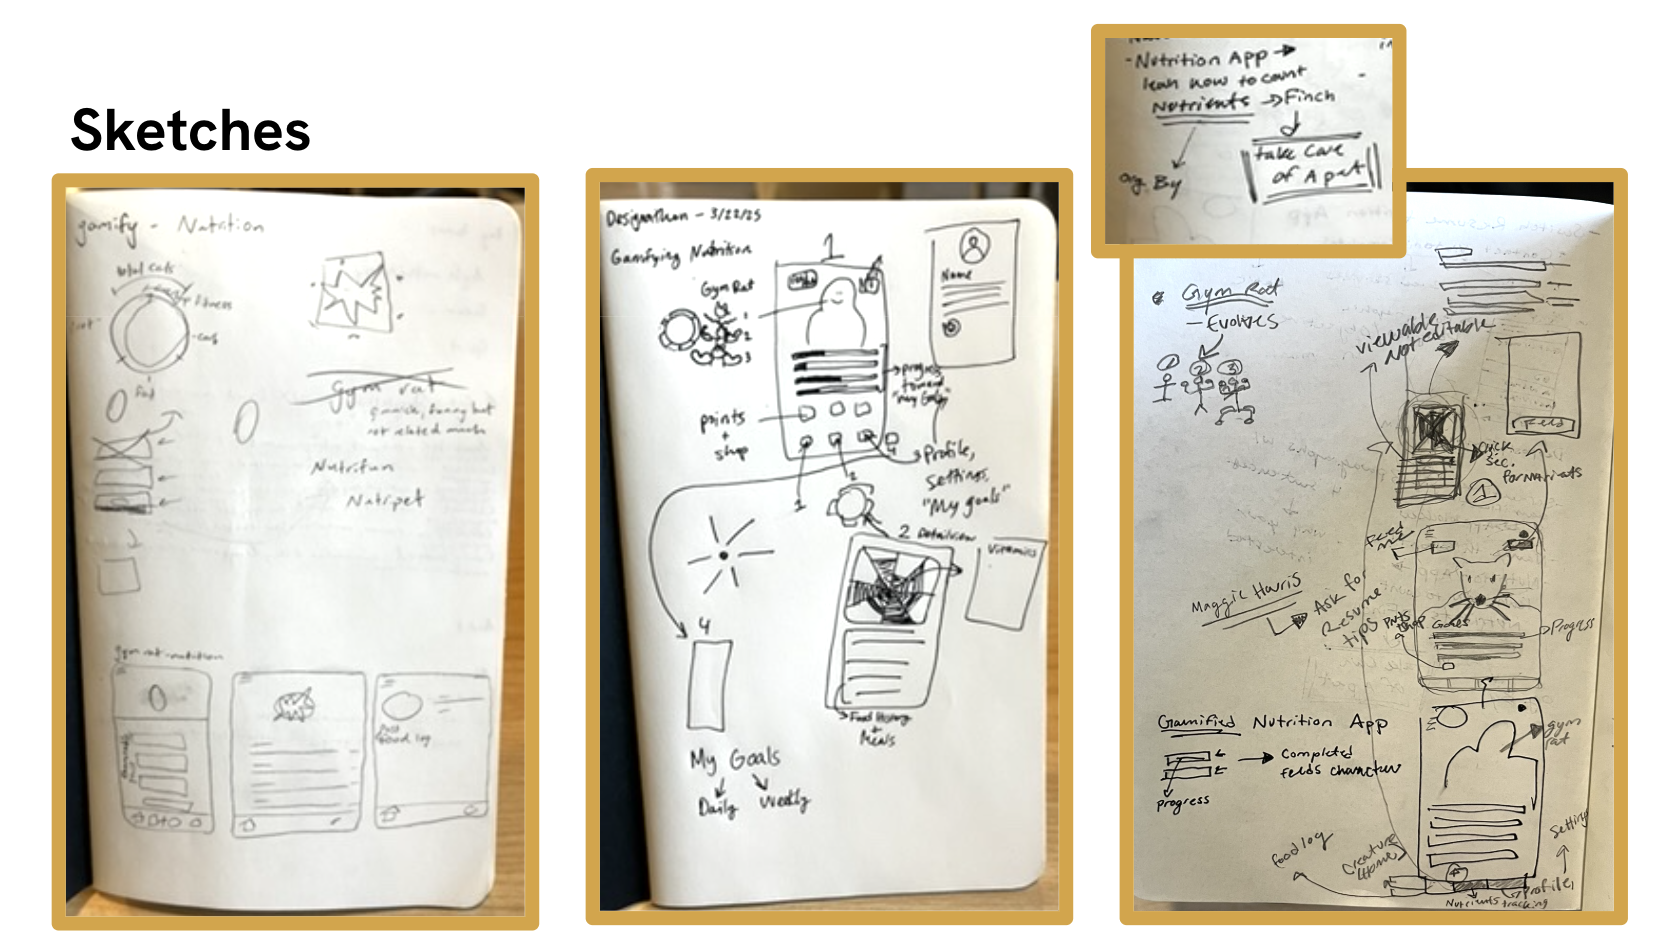 Sketches
gamify - Nutrition
total cals
fitness
Gym rat
not related much
Nutrifun
Nutripet
gym rat-nutrition
food log
Designathon - 3/22/25
Gamifying Nutrition
Gym Rat
1
2
3
1
Name
progress
toward
"my Goals"
points
+
shop
Profile,
settings,
"My goals"
1
2
2 Detail view
Vitamins
4
Food History
+
Meals
My Goals
Daily
Weekly
-Nutrition App
learn how to count
Nutrients
Finch
take Care
of A pet
org By
Gym Rat
- Evolves
1
2
3
viewable
Not editable
Feed
Click
Sec.
for nutrients
1
Feed
me
Maggie Harris
Ask for
Resume
tips
pnts
shop
Goals
Progress
Gamified Nutrition App
Completed
feeds character
progress
gym
rat
food log
Creature
Home
Setting
Profile,
Nutrients tracking